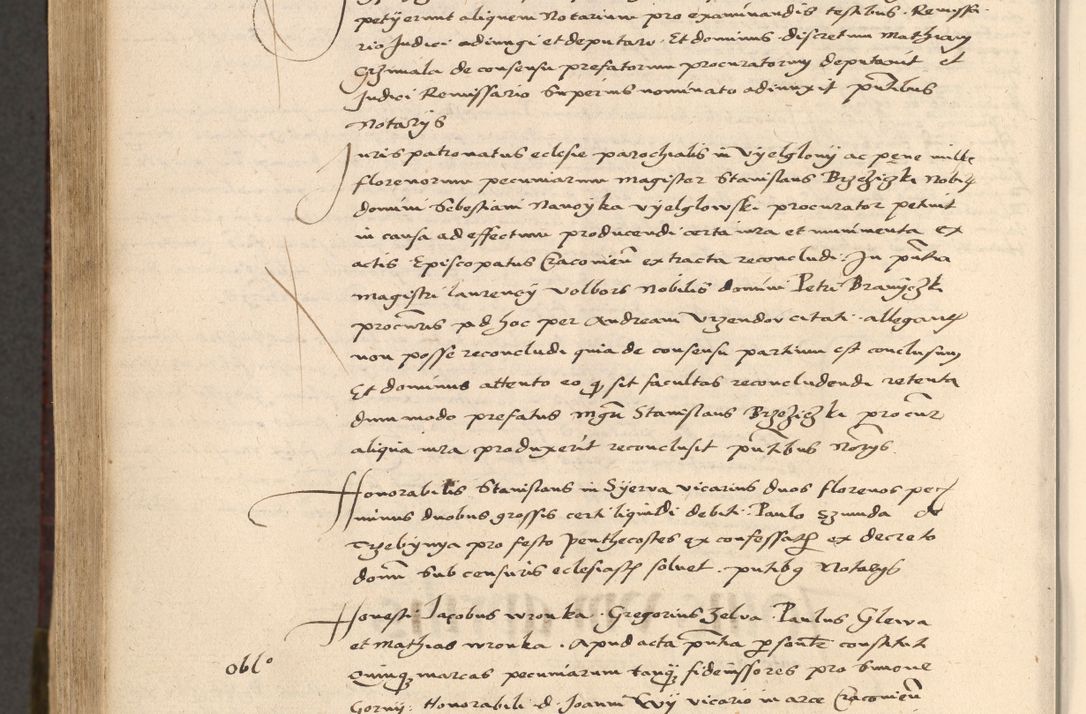 petyerunt aliquem Notarium pro examinandis testibus Remissa-
rio Judici adiungi et deputari. Et dominus discretum Mathiam
Grzimala de consensu prefatorum procuratorum deputavit et
Judici Remissario superius nominato adiunxit pntibus
Notarys
Juris patronatus eclesie parochialis in Vyelglowy ac pene mille
florenorum pecuniarum magister Stanislaus Brzeziczki Nobilis
domini Sebestiani Nanoyka vyelglowski procurator petiuit
in causa ad effectum producendi certa iura et munimenta ex
actis Episcopatus Cracovien extracta reconcludi. In pntia
magistri laurency Volbors Nobilis domini Petri Branyczki
procuris ad hoc per Andream Vrzendov citati. allegan
non posse reconcludi quia de consensu partium est conclusum
Et dominus attento eo q sit facultas reconcludendi retenta
dum modo prefatus mgr Stanislaus Brzeziczki procur
aliqua iura produxerit reconclusit pntibus Norys
Honorabilis Stanislaus in Syerva vicarius duos florenos pec
minus duobus grossis certi liquidi debiti Paulo Szmuda de
Trzebynya pro festo penthecostes ex confessat ex decreto
domi sub censuris eclesiast soluet. pntibq Notarys
Honesti Jacobus wronka. Gregorius Zelva. Paulus Glewa
et Mathias wronka. Apud acta pntia psont constituti
Quinq marcas pecuniarum tanq fideiussores pro Simone
oblo
Gorny. Honorabili d. Joanni Wy vicario in arce Cracovien